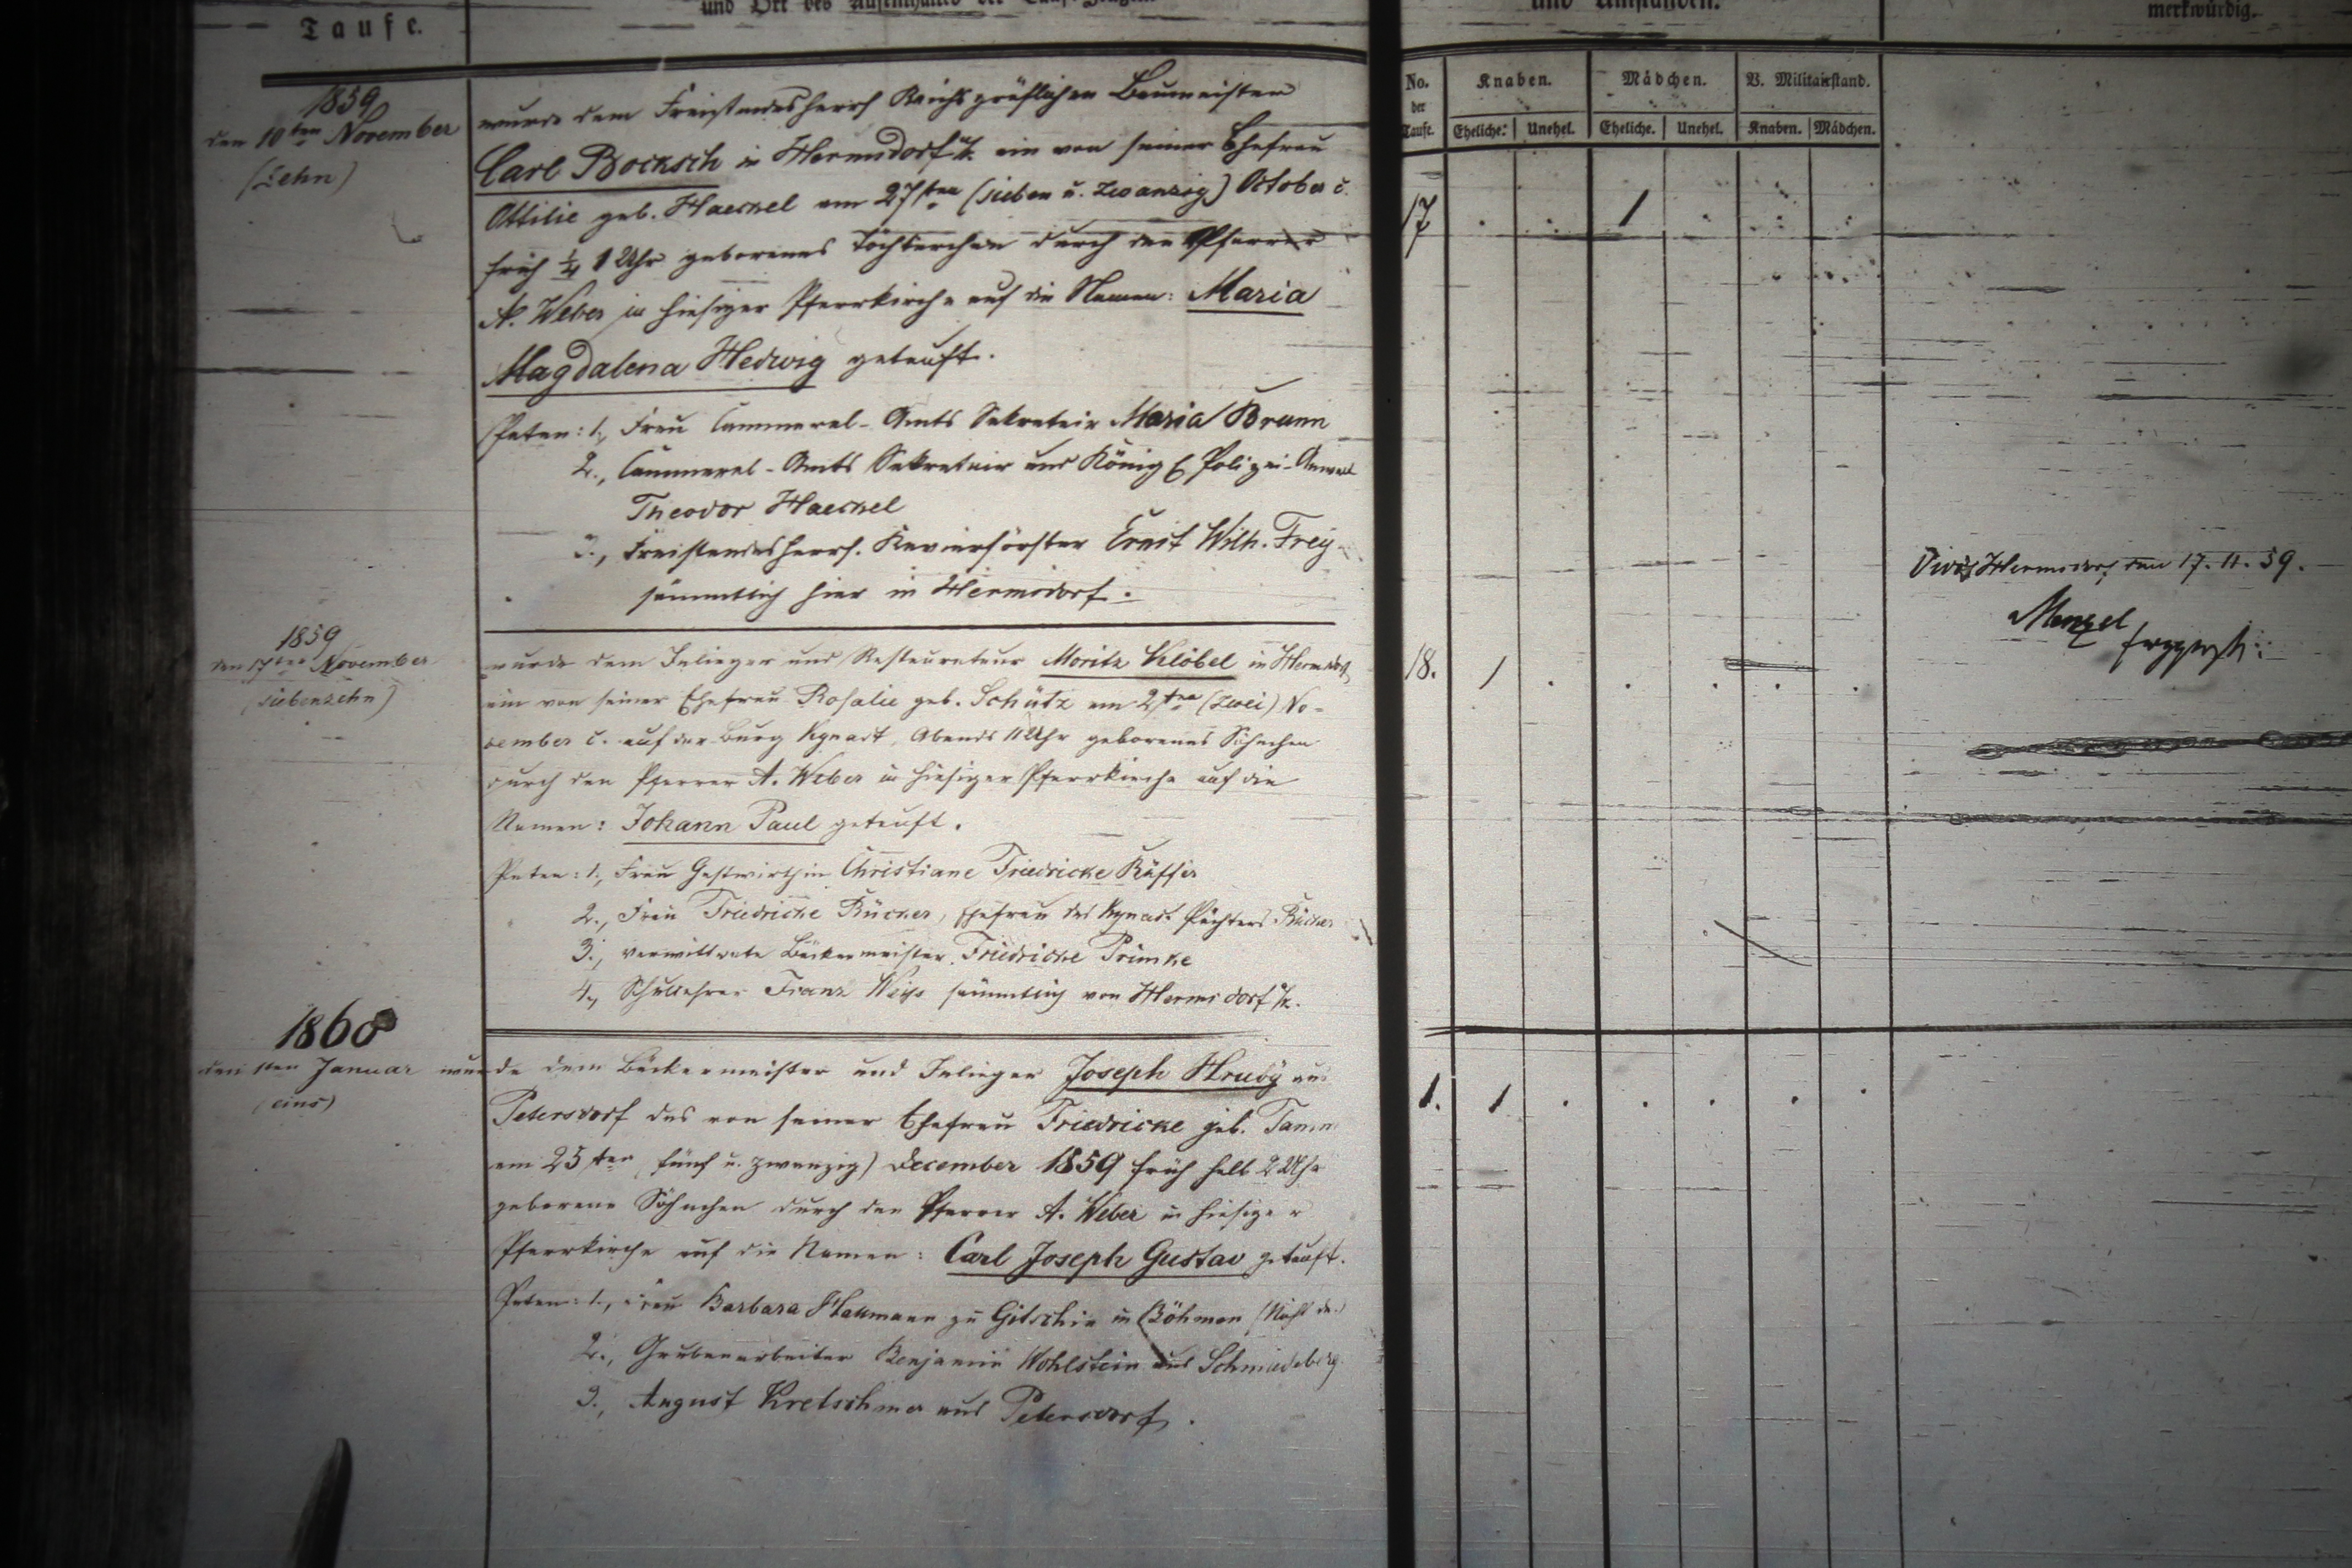 Taufe.
und Ort des Aufenthaltes der Tauf-Zeugen.
und Umständen.
merkwürdig.
No. der Taufe.
Knaben.
Mädchen.
B. Militairstand.
Eheliche.
Unehel.
Eheliche.
Unehel.
Knaben.
Mädchen.
1859
den 10ten November
(Zehn)
wurde dem Freistandesherrl Reichsgräflichen Baumeister
Carl Bocksch in Hermsdorf u/k. ein von seiner Ehefrau
Ottilie geb. Haeckel am 27ten (sieben u. zwanzig) October c.
früh ¼ 1 Uhr geborenes Töchterchen durch den Pfarrer
A. Weber in hiesiger Pfarrkirche auf die Namen: Maria
Magdalena Hedwig getauft.
Paten: 1., Frau Cammeral-Amts Sekretair Maria Braun
2., Cammeral-Amts Sekretair und Königl Polizei-Anwalt
Theodor Haeckel
3., Freistandesherrl. Revierförster Ernst Wilh. Frey
sämmtlich hier in Hermsdorf.
17
1
1859
den 17ten November
(siebenzehn)
wurde dem Inlieger und Restaurateur Moritz Klöbel in Hermsdorf
ein von seiner Ehefrau Rosalie geb. Schütz am 2ten (zwei) No-
vember c. auf der Burg Kynast, Abends 11 Uhr geborenes Söhnchen
durch den Pfarrer A. Weber in hiesiger Pfarrkirche auf die
Namen: Johann Paul getauft.
Paten: 1., Frau Gastwirthin Christiane Friedricke Küffer
2., Frau Friedricke Rücker, Ehefrau des Kynast Pächters Rücker
3., verwittwete Bäckermeister Friedricke Primke
4., Schullehrer Franz Weiss sämmtlich von Hermsdorf u/k.
18.
1
Vidi Hermsdorf den 17.11.59.
Menzel
1860
den 1ten Januar
(eins)
wurde dem Bäckermeister und Inlieger Joseph Hruby aus
Petersdorf das von seiner Ehefrau Friedricke geb. Tamm
am 25ten (fünf u. zwanzig) December 1859 früh halb 2 Uhr
geborene Söhnchen durch den Pfarrer A. Weber in hiesiger
Pfarrkirche auf die Namen: Carl Joseph Gustav getauft.
Paten: 1., Frau Barbara zu Gitschin in Böhmen
2., Grubenarbeiter Benjamin Wohlstein aus Schmiedeberg
3., August Kretschmer aus Petersdorf.
1.
1